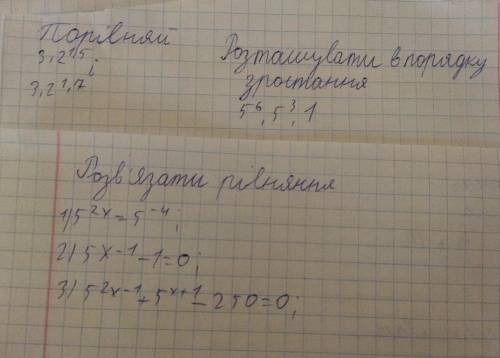 Порівняй
3,2^1,5
і
3,2^1,7
Розташувати в порядку
зростання
5^6, 5^3, 1
Розв'язати рівняння
1) 5^2x = 5^-4;
2) 5^x-1 - 1 = 0;
3) 5^2x-1 + 5^x+1 - 250 = 0;